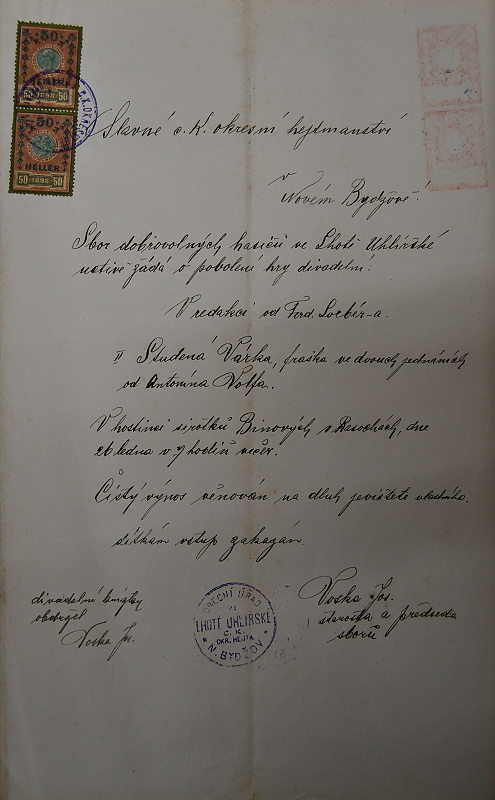 50
HELLER
50 1898 50
50
HELLER
50 1898 50
Slavné c. K. okresní hejtmanství
v
Novém Bydžově!
Sbor dobrovolných hasičů ve Lhotě Uhlířské
uctivě žádá o pobolení hry divadelní:
V redakci od Ferd. Loebér-a.
II Studená Varka, fraška ve dvouch jednáních
od Antonína Volfa.
V hostinci sirotků Binových v Rasochách, dne
26 ledna v 7 hodin večer.
Čistý výnos věnován na dluh jevištěte vlastního.
dítkám vstup zakázán.
divadelní knížky
obdržel
Voska Jos.
OBECNÍ ÚŘAD
VE
LHOTĚ UHLÍŘSKÉ
C. K.
OKR. HEJTM.
N. BYDŽOV
Voska Jos.
starosta a předseda
sborů